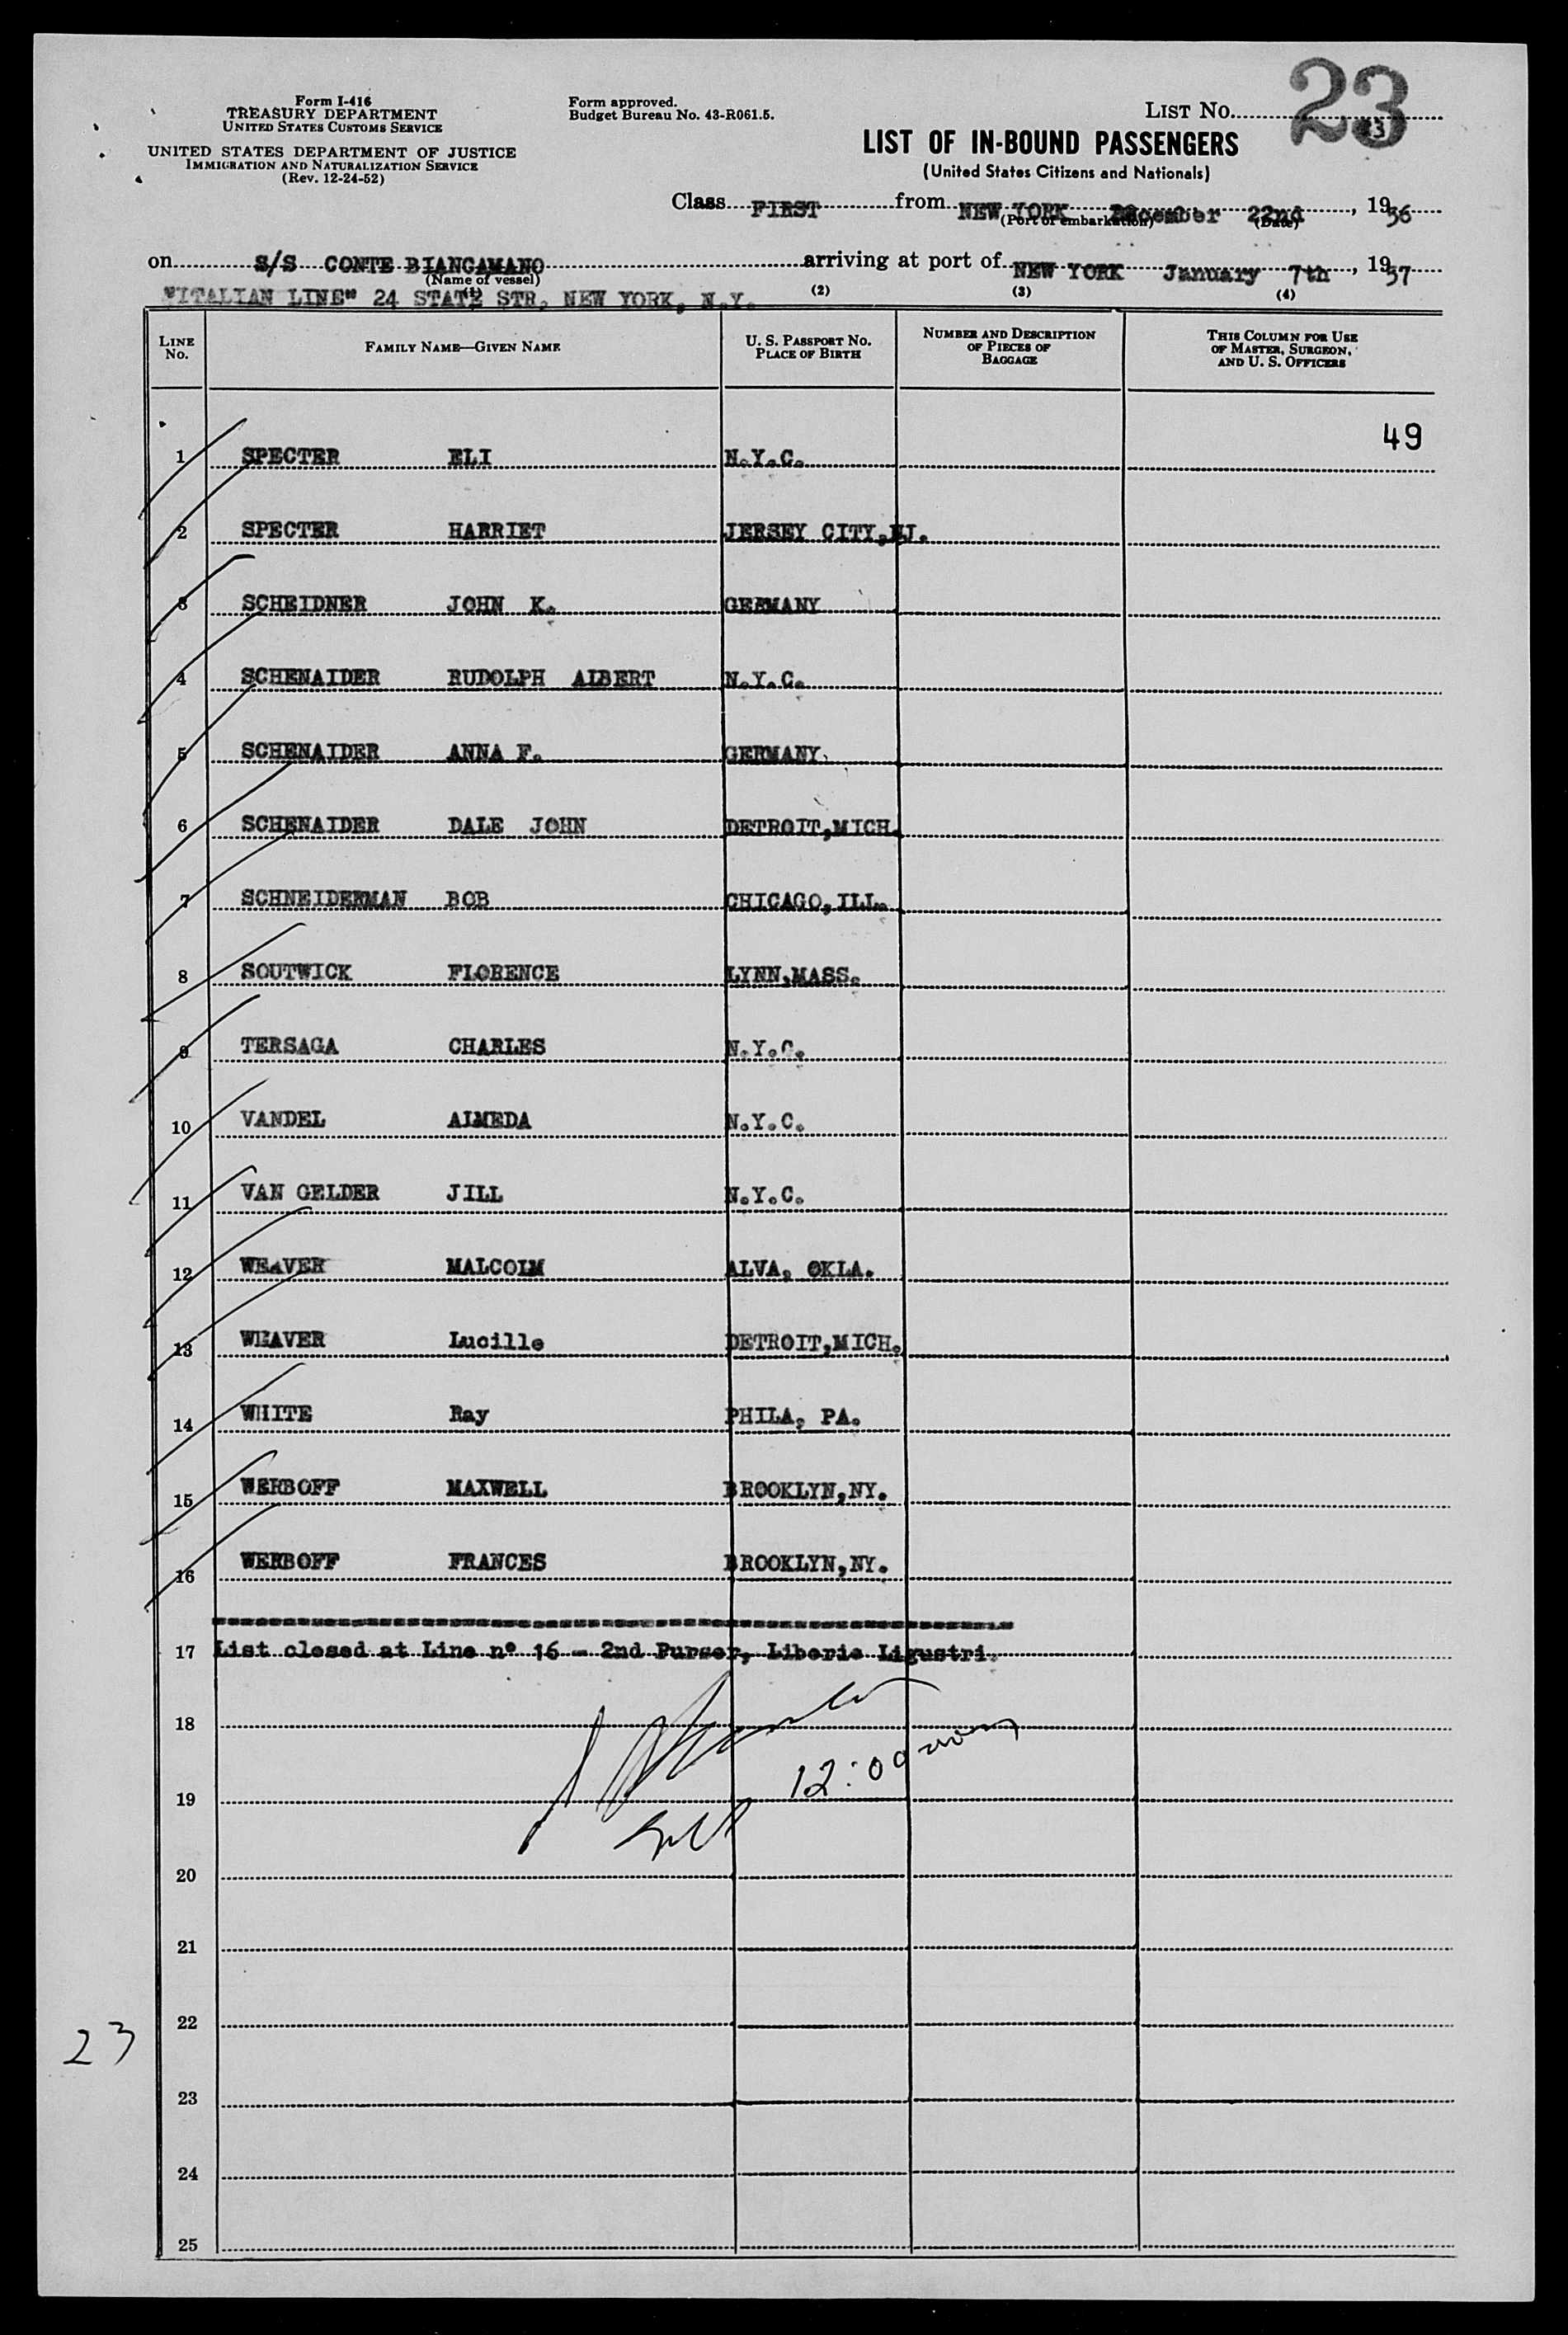 Form I-416
TREASURY DEPARTMENT
UNITED STATES CUSTOMS SERVICE
UNITED STATES DEPARTMENT OF JUSTICE
IMMIGRATION AND NATURALIZATION SERVICE
(Rev. 12-24-52)
Form approved.
Budget Bureau No. 43-R061.5.
LIST No. 23
LIST OF IN-BOUND PASSENGERS
(United States Citizens and Nationals)
Class FIRST from NEW YORK December 22nd, 1956
(Port of embarkation) (Date)
on S/S CONTE BIANCAMANO arriving at port of NEW YORK January 7th, 1957
(Name of vessel)
"ITALIAN LINE" 24 STATE STR, NEW YORK, N.Y.
(1) (2) (3) (4)
LINE No. FAMILY NAME—GIVEN NAME U. S. PASSPORT No. PLACE OF BIRTH NUMBER AND DESCRIPTION OF PIECES OF BAGGAGE THIS COLUMN FOR USE OF MASTER, SURGEON, AND U. S. OFFICERS
49
1 SPECTER ELI N.Y.C.
2 SPECTER HARRIET JERSEY CITY,NJ.
3 SCHEIDNER JOHN K. GERMANY
4 SCHENAIDER RUDOLPH ALBERT N.Y.C.
5 SCHENAIDER ANNA F. GERMANY
6 SCHENAIDER DALE JOHN DETROIT,MICH.
7 SCHNEIDERMAN BOB CHICAGO,ILL.
8 SOUTWICK FLORENCE LYNN,MASS.
9 TERSAGA CHARLES N.Y.C.
10 VANDEL ALMEDA N.Y.C.
11 VAN GELDER JILL N.Y.C.
12 WEAVER MALCOLM ALVA, OKLA.
13 WEAVER Lucille DETROIT,MICH.
14 WHITE Ray PHILA, PA.
15 WERBOFF MAXWELL BROOKLYN,NY.
16 WERBOFF FRANCES BROOKLYN,NY.
17 List closed at Line nº 16 - 2nd Purser, Liberio Ligustri.
18
12:00 noon
19
20
21
22
23
23
24
25